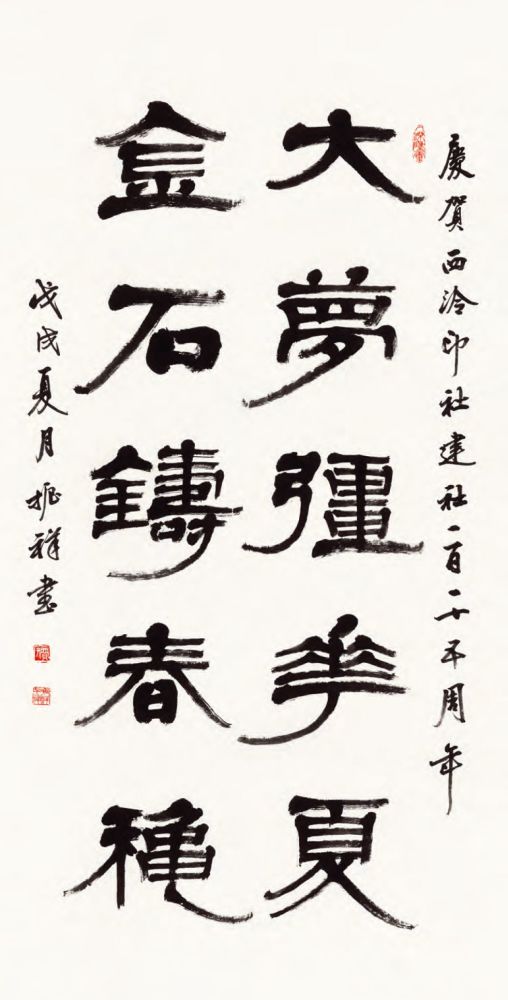 慶賀西泠印社建社一百二十五周年
大夢彊華夏
金石鑄春穐
戊戌夏月振祥書